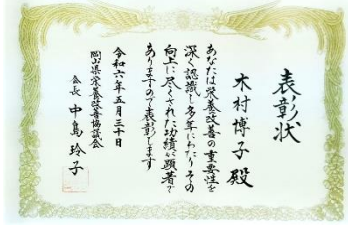 表彰状
木村博子殿
あなたは栄養改善の重要性を
深く認識し多年にわたりその
向上に尽くされた功績が顕著で
ありますので表彰します
令和六年五月三十日
岡山県栄養改善協議会
会長 中島玲子